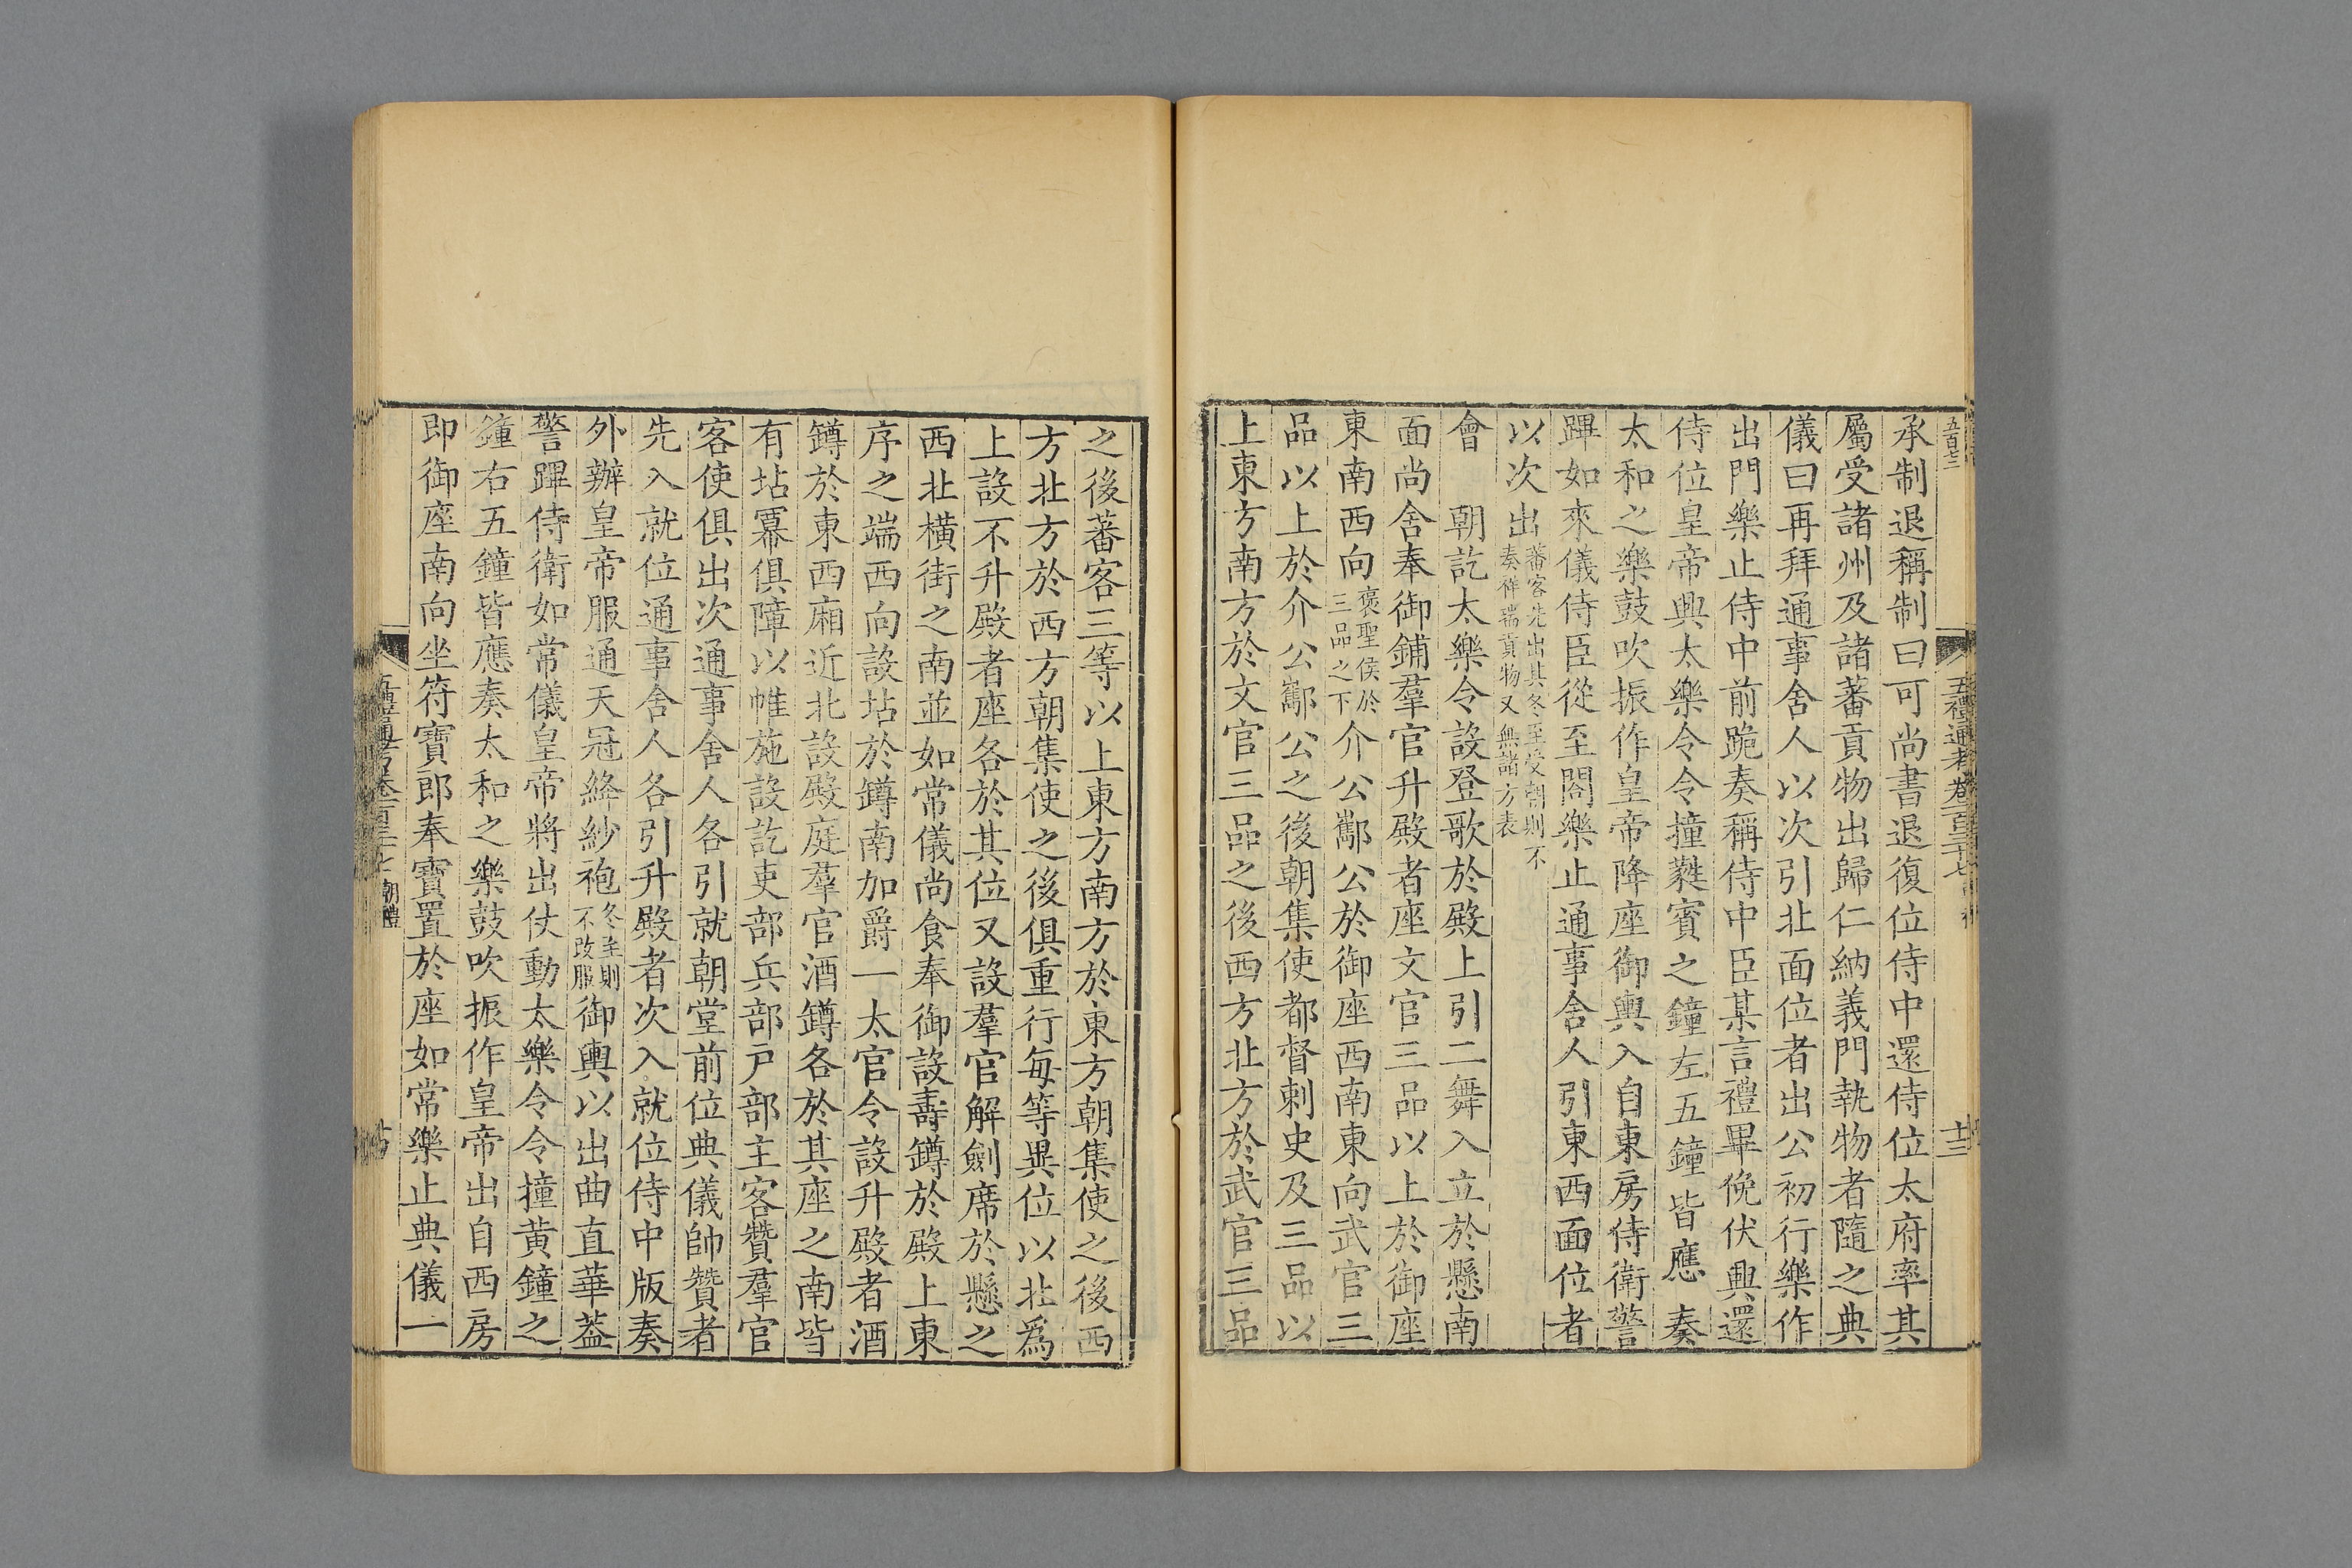 五百七三
五禮通考卷一百三十七 禮
十三
承制退稱制曰可尚書退復位侍中還侍位太府率其
屬受諸州及諸蕃貢物出歸仁納義門執物者隨之典
儀曰再拜通事舍人以次引北面位者出公初行樂作
出門樂止侍中前跪奏稱侍中臣某言禮畢俛伏興還
侍位皇帝興太樂令令撞蕤賓之鐘左五鐘皆應奏
太和之樂鼓吹振作皇帝降座御輿入自東房侍衛警
蹕如來儀侍臣從至閤樂止通事舍人引東西面位者
以次出蕃客先出其冬至受朝則不奏祥瑞貢物又無諸方表
會 朝訖太樂令設登歌於殿上引二舞入立於懸南
面尚舍奉御鋪羣官升殿者座文官三品以上於御座
東南西向褒聖侯於三品之下介公酅公於御座西南東向武官三
品以上於介公酅公之後朝集使都督刺史及三品以
上東方南方於文官三品之後西方北方於武官三品
之後蕃客三等以上東方南方於東方朝集使之後西
方北方於西方朝集使之後俱重行每等異位以北爲
上設不升殿者座各於其位又設羣官解劍席於懸之
西北橫街之南並如常儀尚食奉御設壽罇於殿上東
序之端西向設坫於罇南加爵一太官令設升殿者酒
罇於東西廂近北設殿庭羣官酒罇各於其座之南皆
有坫冪俱障以帷施設訖吏部兵部戶部主客贊羣官
客使俱出次通事舍人各引就朝堂前位典儀帥贊者
先入就位通事舍人各引升殿者次入就位侍中版奏
外辦皇帝服通天冠絳紗袍冬至則不改服御輿以出曲直華蓋
警蹕侍衛如常儀皇帝將出仗動太樂令令撞黄鐘之
鐘右五鐘皆應奏太和之樂鼓吹振作皇帝出自西房
即御座南向坐符寶郎奉寶置於座如常樂止典儀一
五禮通考卷一百三十七 朝禮